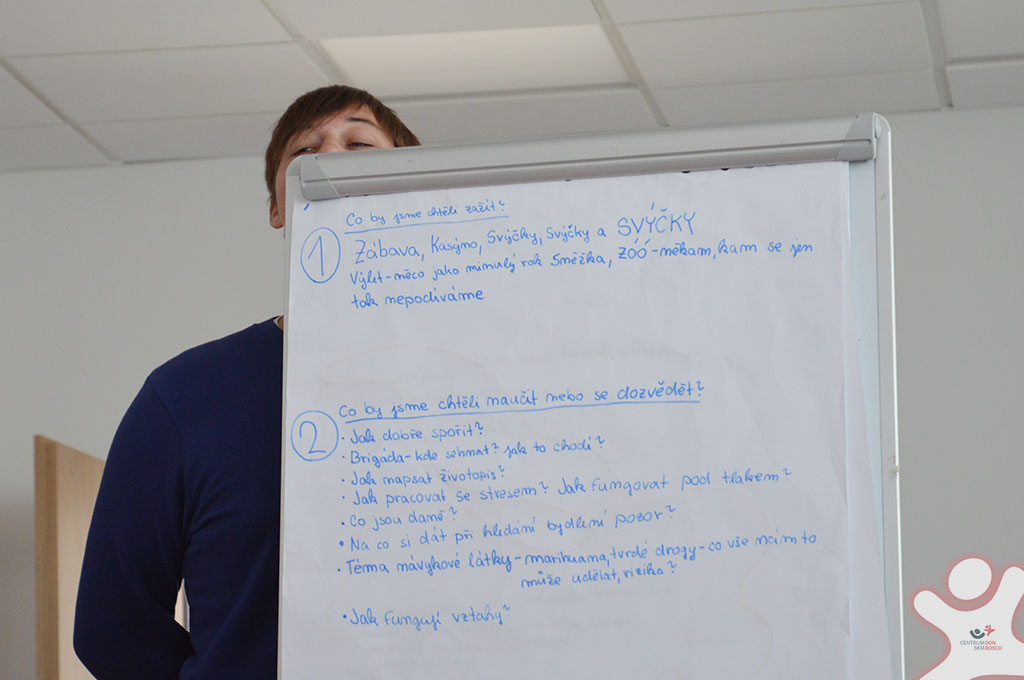 Co by jsme chtěli zažít?
1 Zábava, Kasýno, Svýčky, Svýčky a SVÝČKY
Výlet-něco jako minulý rok Sněžka, ZÓÓ-někam, kam se jen
tak nepodíváme
Co by jsme chtěli naučit nebo se dozvědět?
2
• Jak dobře spořit?
• Brigáda-kde sehnat? jak to chodí?
• Jak napsat životopis?
• Jak pracovat se stresem? Jak fungovat pod tlakem?
• Co jsou daně?
• Na co si dát při hledání bydlení pozor?
• Téma návykové látky-marihuana, tvrdé drogy-co vše nám to
může udělat, rizika?
• Jak fungují vztahy?
CENTRUM DON
SKM BOSCO